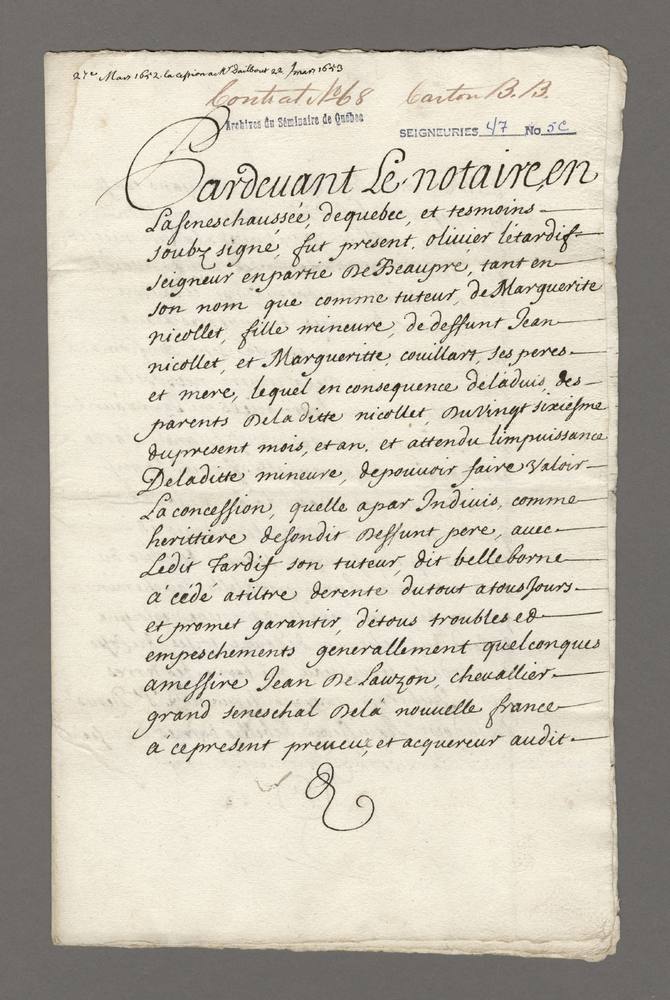 27e Mars 1652 la cession a Mr Dailbout 22 Mars 1653
Contrat No 68 Carton B.B.
Archives du Séminaire de Québec
SEIGNEURIES 47 No 5C
Pardeuant Le notaire, en
La seneschaussée, dequebec, et tesmoins
soubz signé, fut present, olivier létardif
seigneur enpartie DeBeaupré, tant en
son nom que comme tuteur, de Marguerite
nicollet, fille mineure, dedeffunt Jean
nicollet, et Margueritte, couillart, ses peres
et mere, lequel enconsequence deláduis, des
parents Deladitte nicollet, Duvingt sixiesme
dupresent mois, et an. et attendu limpuissance
Deladitte mineure, depouvoir faire Valoir
La concession, quelle apar Indivis, comme
herittiere desondit Deffunt pere, avec
Ledit Tardif son tuteur, dit belleborne
a cédé atiltre derente dutout atousjours
et promet garantir, détous troubles ed
empeschements generallement quelconques
amessire Jean De Lauzon, chevallier
grand seneschal Delá nouvelle france
a cepresent preneur, et acquereur audit